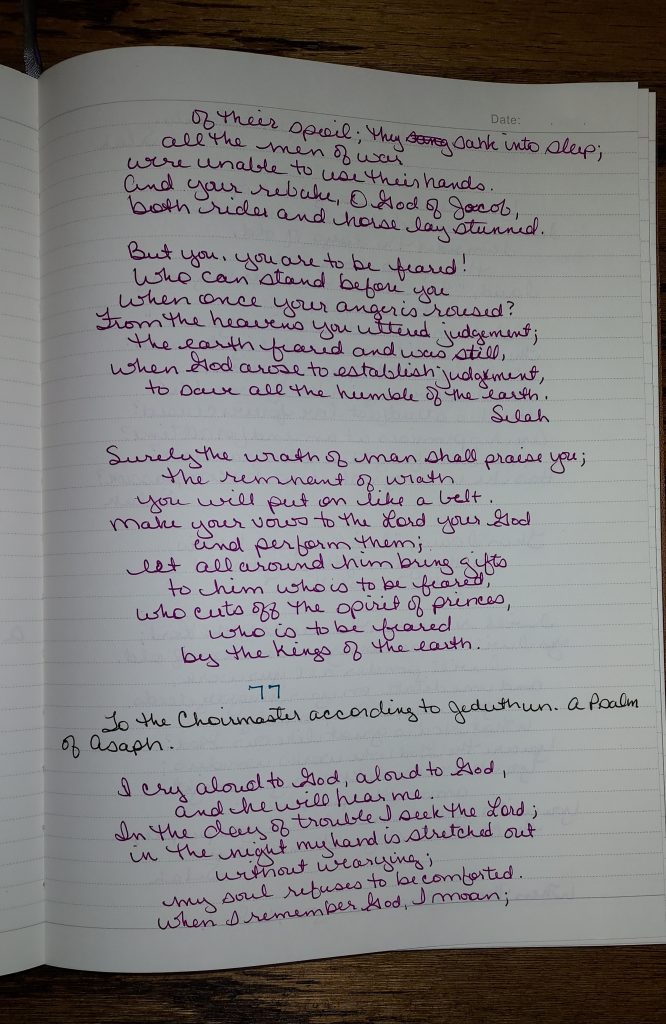 Date:
of their spoil; they sank into sleep;
all the men of war
were unable to use their hands.
And your rebuke, O God of Jacob,
both rider and horse lay stunned.
But you, you are to be feared!
Who can stand before you
when once your anger is roused?
From the heavens you uttered judgement;
the earth feared and was still,
when God arose to establish judgement,
to save all the humble of the earth.
Selah
Surely the wrath of man shall praise you;
the remnant of wrath
you will put on like a belt.
Make your vows to the Lord your God
and perform them;
let all around him bring gifts
to him who is to be feared,
who cuts off the spirit of princes,
who is to be feared
by the kings of the earth.
77
To the Choirmaster according to Jeduthun. A Psalm
of Asaph.
I cry aloud to God, aloud to God,
and he will hear me.
In the day of trouble I seek the Lord;
in the night my hand is stretched out
without wearying;
my soul refuses to be comforted.
When I remember God, I moan;